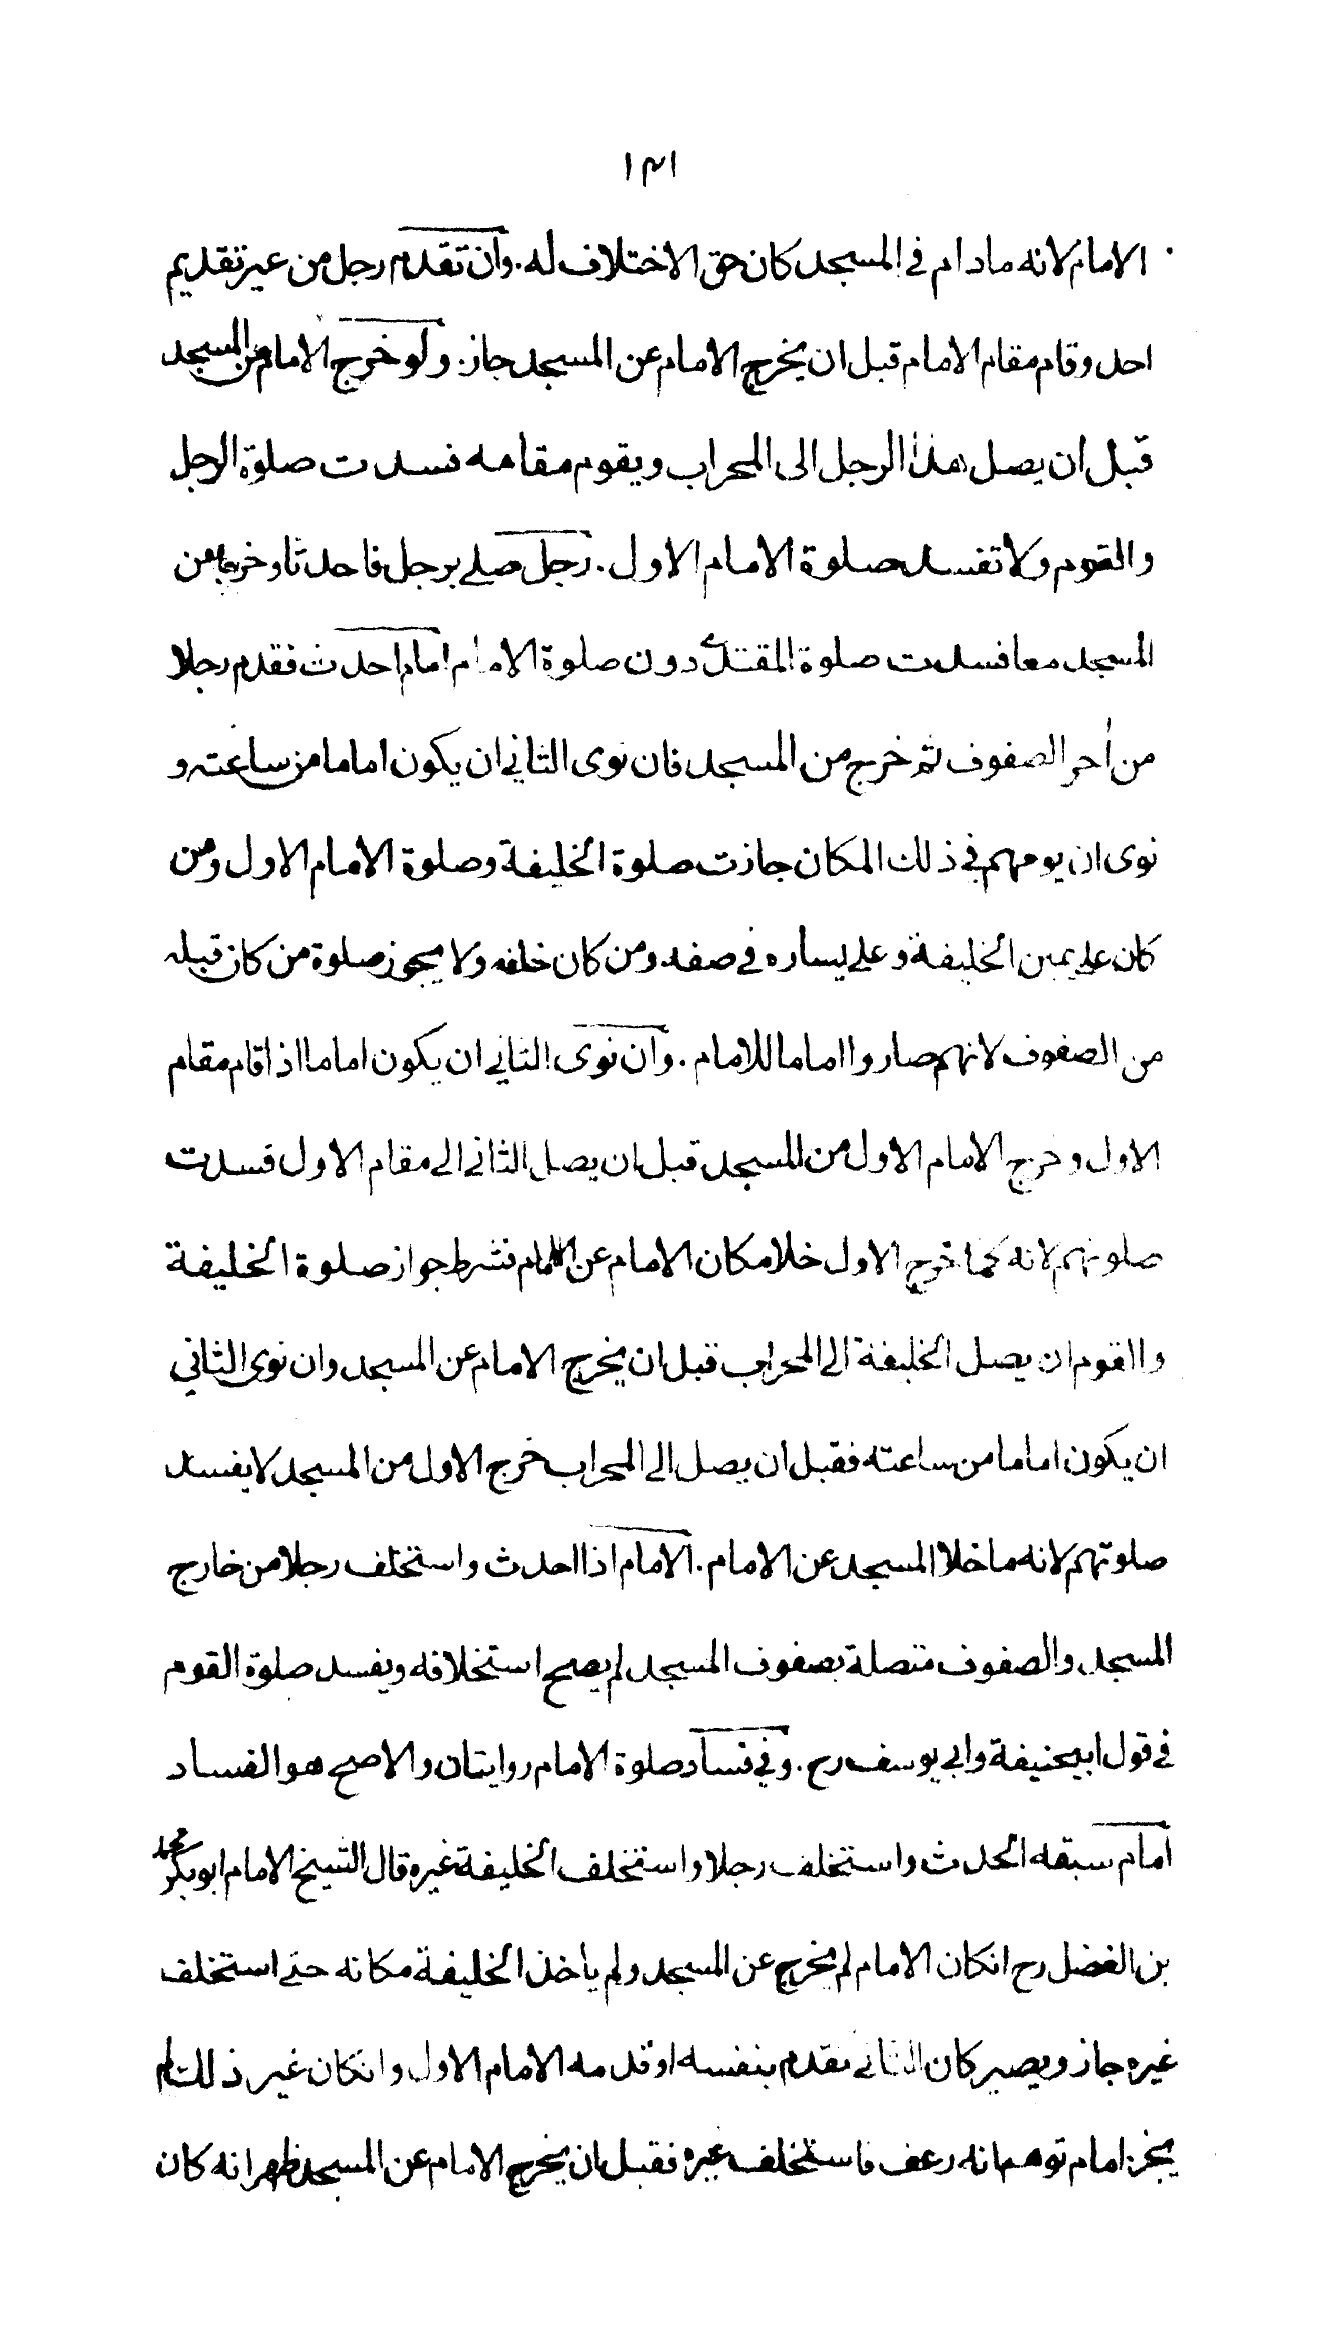 ١٣١
الامام لانه مادام في المسجد كان حق الاختلاف له. وان تقدم رجل من غير تقديم
احد وقام مقام الامام قبل ان يخرج الامام عن المسجد جاز. ولو خرج الامام من المسجد
قبل ان يصل هذا الرجل الى المحراب ويقوم مقامه فسدت صلوة الرجل
والقوم ولا تفسد صلوة الامام الاول. رجل صلى برجل فاحدثا وخرجا من
المسجد معا فسدت صلوة المقتدى دون صلوة الامام امام احدث فقدم رجلا
من أخر الصفوف ثم خرج من المسجد فان نوى الثاني ان يكون اماما من ساعته و
نوى ان يومهم في ذلك المكان جازت صلوة الخليفة وصلوة الامام الاول ومن
كان على يمين الخليفة وعلى يساره في صفه ومن كان خلفه ولا يجوز صلوة من كان قبله
من الصفوف لانهم صاروا اماما للامام. وان نوى الثاني ان يكون اماما اذا قام مقام
الاول وخرج الامام الاول من المسجد قبل ان يصل الثاني الى مقام الاول فسدت
صلوتهم لانه كما خرج الاول خلا مكان الامام عن الامام فشرط جواز صلوة الخليفة
والقوم ان يصل الخليفة الى المحراب قبل ان يخرج الامام عن المسجد وان نوى الثاني
ان يكون اماما من ساعته فقبل ان يصل الى المحراب خرج الاول من المسجد لا يفسد
صلوتهم لانه ما خلا المسجد عن الامام. الامام اذا احدث واستخلف رجلا من خارج
المسجد والصفوف متصلة بصفوف المسجد لم يصح استخلافه ويفسد صلوة القوم
في قول ابيحنيفة وابي يوسف رح. وفي فساد صلوة الامام روايتان والاصح هو الفساد
امام سبقه الحدث واستخلف رجلا واستخلف الخليفة غيره قال الشيخ الامام ابو بكر محمد
بن الفضل رح انكان الامام لم يخرج عن المسجد ولم ياخذ الخليفة مكانه حتى استخلف
غيره جاز ويصير كان الثاني تقدم بنفسه او قدمه الامام الاول وانكان غير ذلك لم
يجز: امام توهم انه رعف فاستخلف غيره فقبل ان يخرج الامام عن المسجد ظهر انه كان